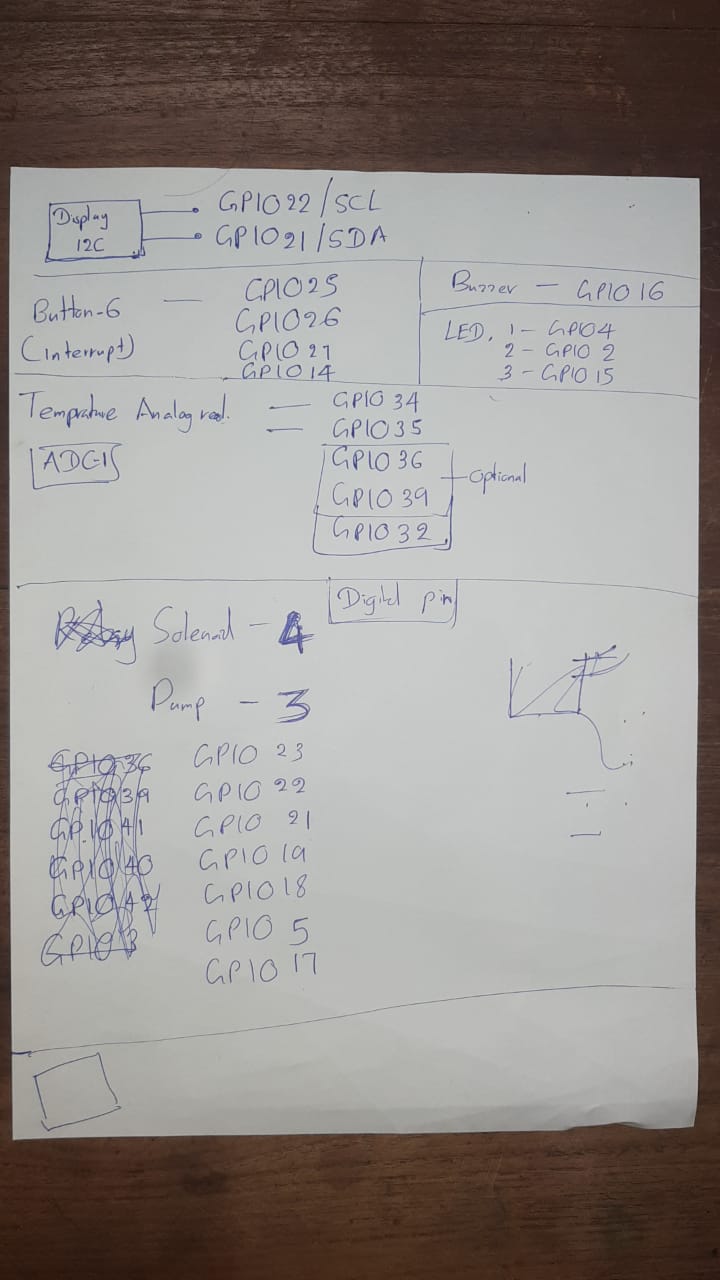 Display
I2C
GPIO22/SCL
GPIO21/SDA
Button-6
(interrupt)
GPIO25
GPIO26
GPIO27
GPIO14
Buzzer - GPIO16
LED. 1 - GPIO4
2 - GPIO 2
3 - GPIO 15
Temprature Analog read.
ADC1
GPIO 34
GPIO35
GPIO36
GPIO39
GPIO32
Optional
Digital pin
Solenoid - 4
Pump - 3
GPIO36
GPIO39
GPIO41
GPIO40
GPIO42
GPIO3
GPIO 23
GPIO 22
GPIO 21
GPIO 19
GPIO 18
GPIO 5
GPIO 17